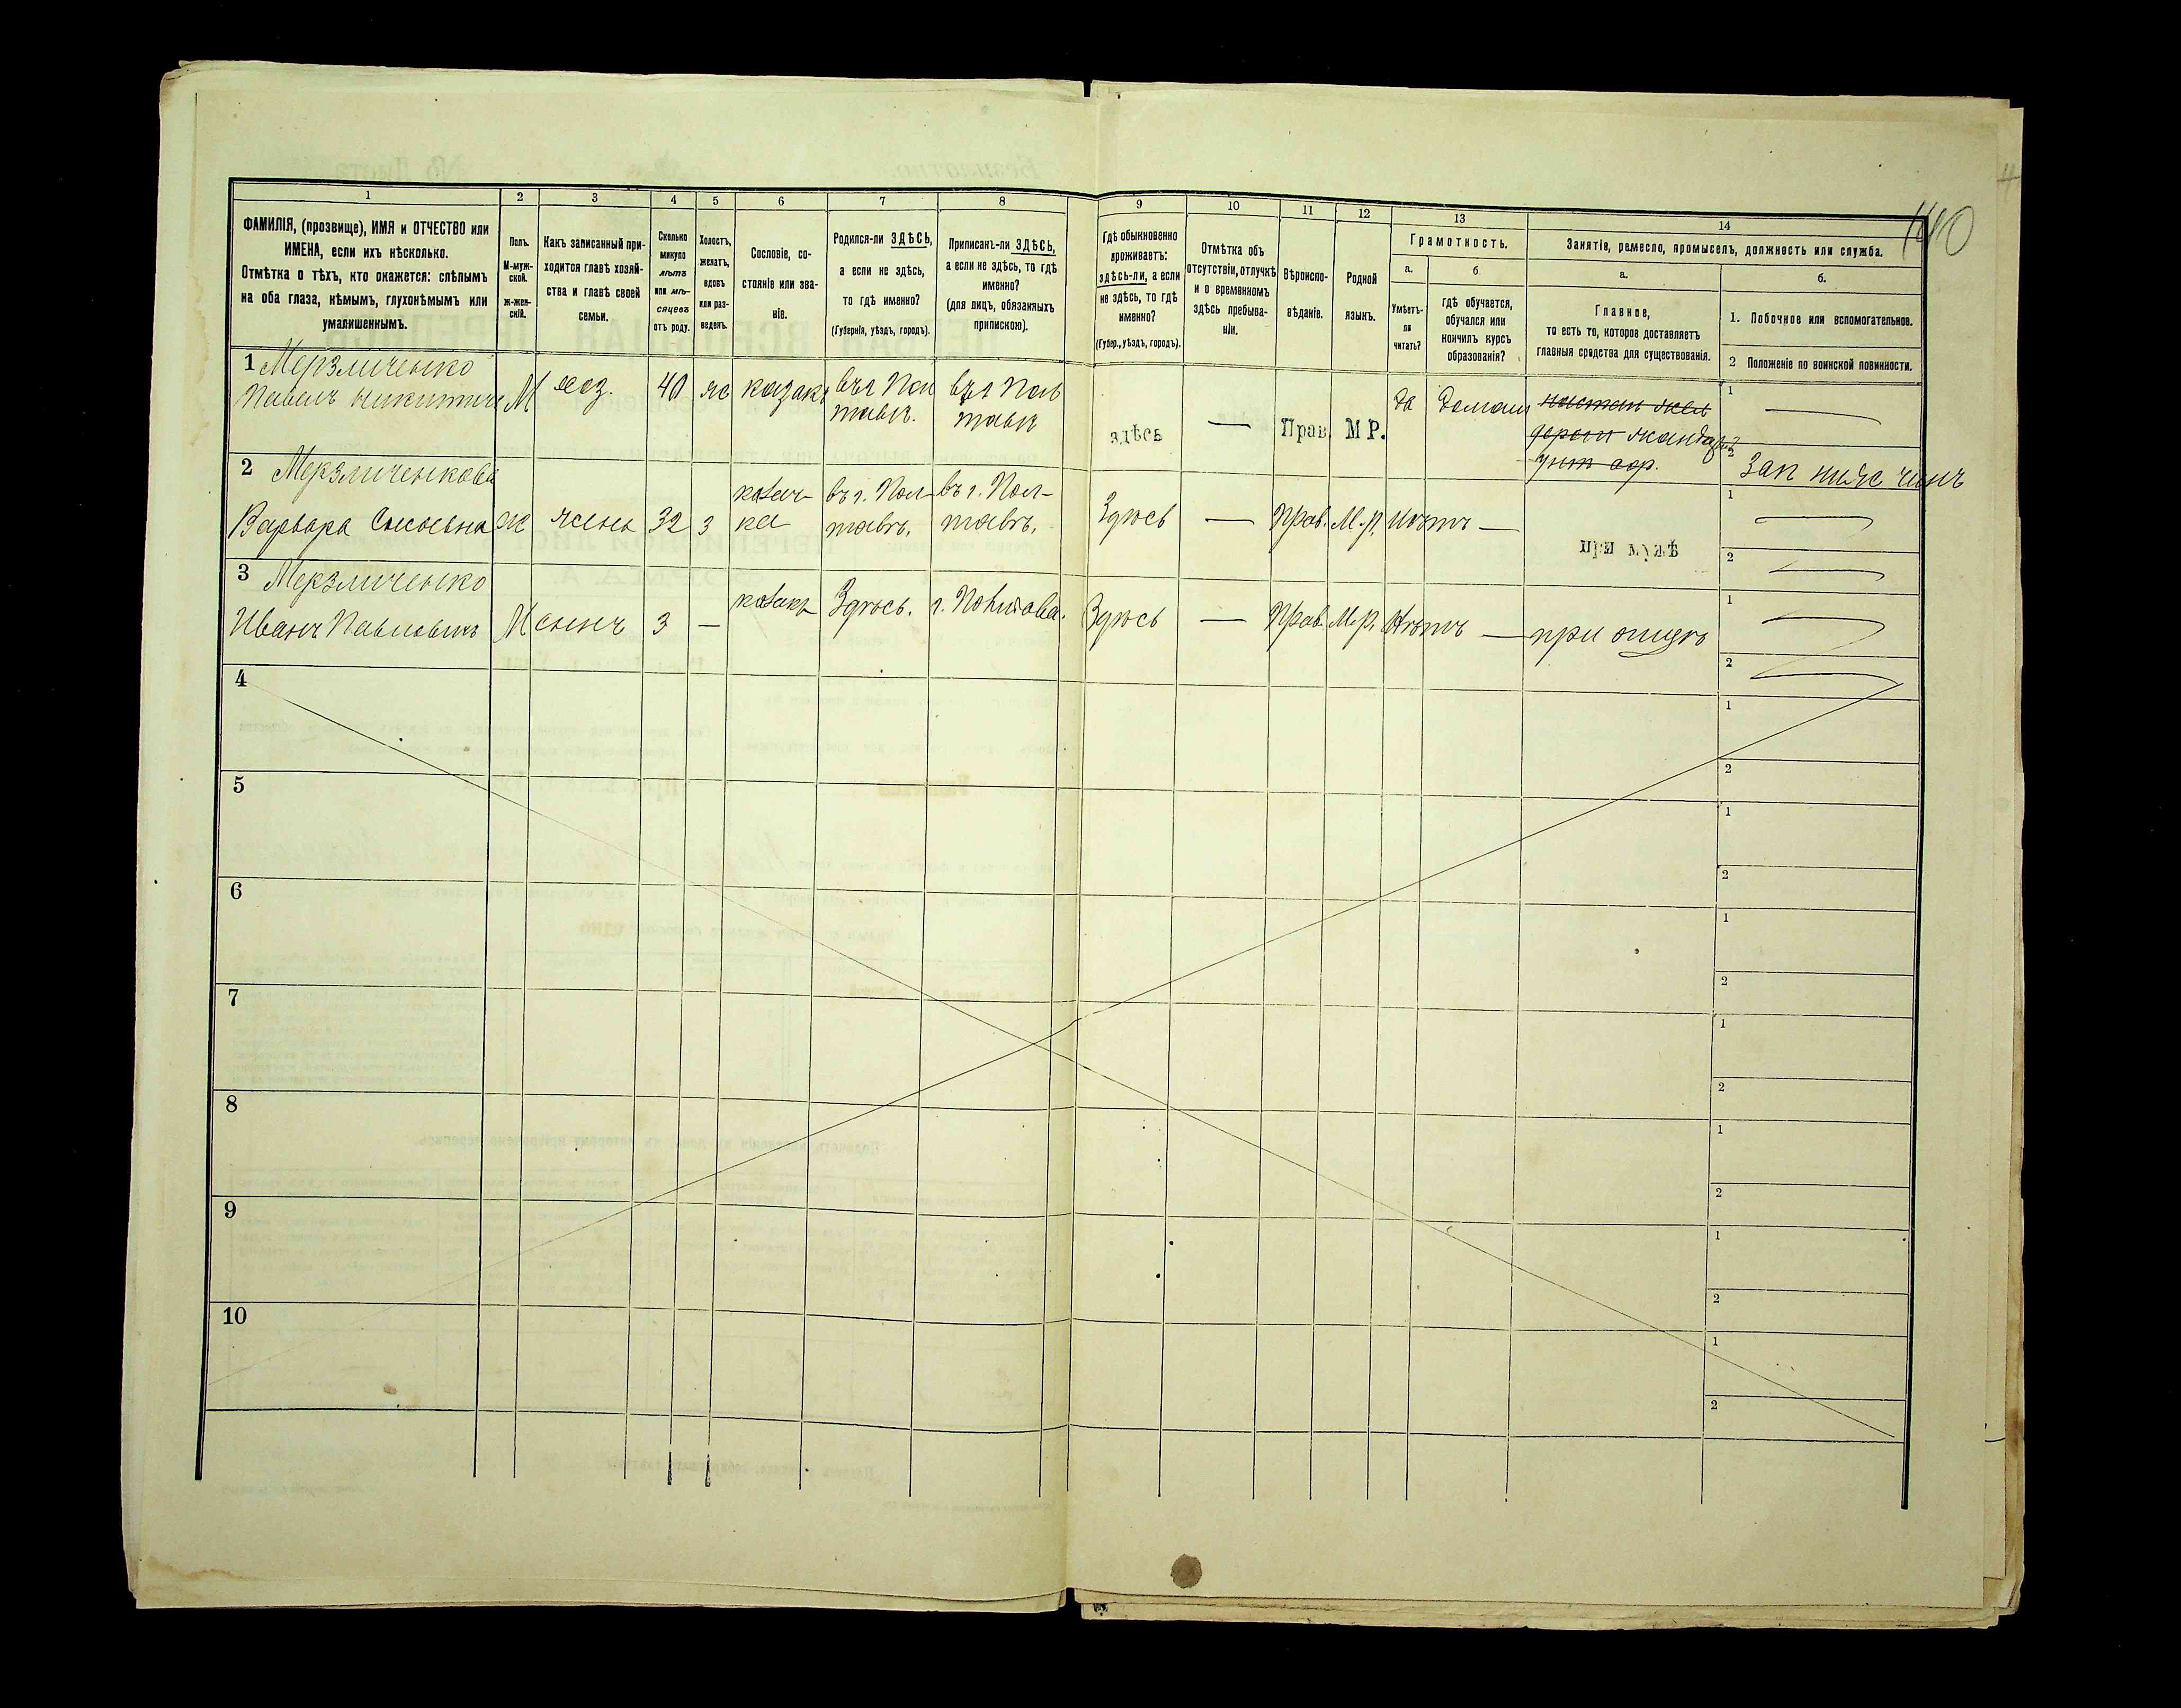 1 2 3 4 5 6 7 8 9 10 11 12 13 14
ФАМИЛІЯ, (прозвище), ИМЯ и ОТЧЕСТВО или
ИМЕНА, если ихъ нѣсколько.
Отмѣтка о тѣхъ, кто окажется: слѣпымъ
на оба глаза, нѣмымъ, глухонѣмымъ или
умалишеннымъ.
Полъ.
М-муж-
ской.
ж-жен-
скій.
Какъ записанный при-
ходится главѣ хозяй-
ства и главѣ своей
семьи.
Сколько
минуло
лѣтъ
или мѣ-
сяцевъ
отъ роду.
Холостъ,
женатъ,
вдовъ
или раз-
веденъ.
Сословіе, со-
стояніе или зва-
ніе.
Родился-ли ЗДѢСЬ,
а если не здѣсь,
то гдѣ именно?
(Губернія, уѣздъ, городъ).
Приписанъ-ли ЗДѢСЬ,
а если не здѣсь, то гдѣ
именно?
(для лицъ, обязанныхъ
припискою).
Гдѣ обыкновенно
проживаетъ:
здѣсь-ли, а если
не здѣсь, то гдѣ
именно?
(Губер., уѣздъ, городъ).
Отмѣтка объ
отсутствіи, отлучкѣ
и о временномъ
здѣсь пребыва-
ніи.
Вѣроиспо-
вѣданіе.
Родной
языкъ.
Грамотность.
а.
Умѣетъ-
ли
читать?
б.
гдѣ обучается,
обучался или
кончилъ курсъ
образованія?
Занятіе, ремесло, промыселъ, должность или служба.
а.
Главное,
то есть то, которое доставляетъ
главныя средства для существованія.
б.
1. Побочное или вспомогательное.
2 Положеніе по воинской повинности.
1 Мерзличенко
Павелъ Никитичъ
М
хоз.
40
ж
казакъ
въ г Пол
тавѣ.
въ г Пол
тавѣ
здѣсь
—
Прав.
МР.
да
домаш
жандар
1 —
2 Зап ниж чинъ
2 Мерзличенкова
Варвара
ж
жена
32
з
казач-
ка
въ г. Пол-
тавѣ.
въ г. Пол-
тавѣ.
Здѣсь
—
Прав.
М.р.
Нѣтъ
—
при мужѣ
1
2
3 Мерзличенко
Иванъ Павловичъ
М
сынъ
3
—
казакъ
Здѣсь.
г. Полтава.
Здѣсь
—
Прав.
М.р.
Нѣтъ
—
при отцѣ
1
2
4
1
2
5
1
2
6
1
2
7
1
2
8
1
2
9
1
2
10
1
2